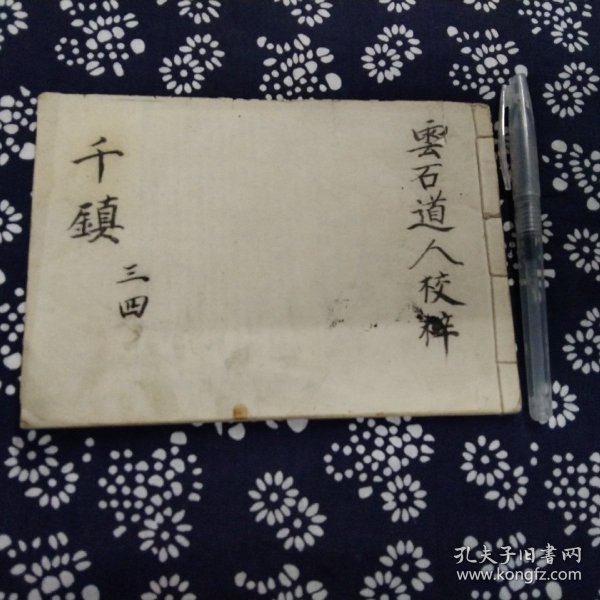 雲石道人校梓
千鎮
三四
孔夫子旧書网
www.kongfz.com